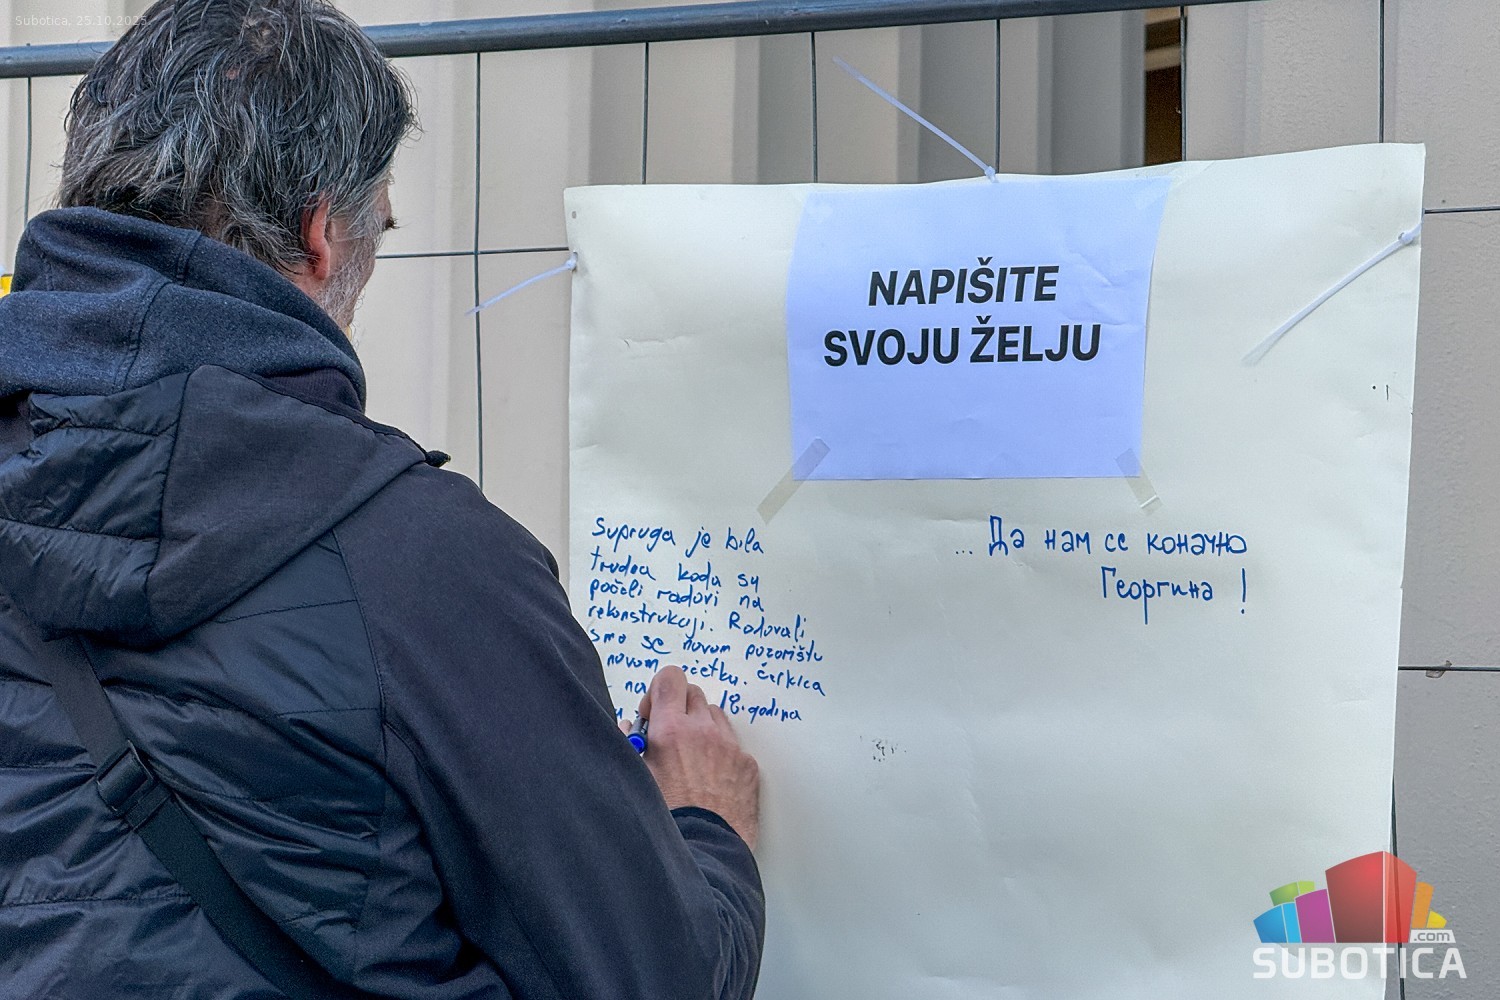 Subotica, 25.10.2025
NAPIŠITE
SVOJU ŽELJU
Supruga je bila
trudna kada su
počeli radovi na
rekonstrukciji. Radovali
smo se novom pozorištu
novom početku. Ćerkica
na 18. godina
... Да нам се коначно
Георгина !
.com
SUBOTICA